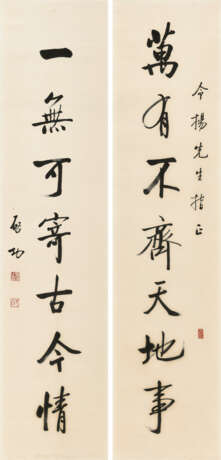 令楊先生指正
萬有不齊天地事
一無可寄古今情
啟功